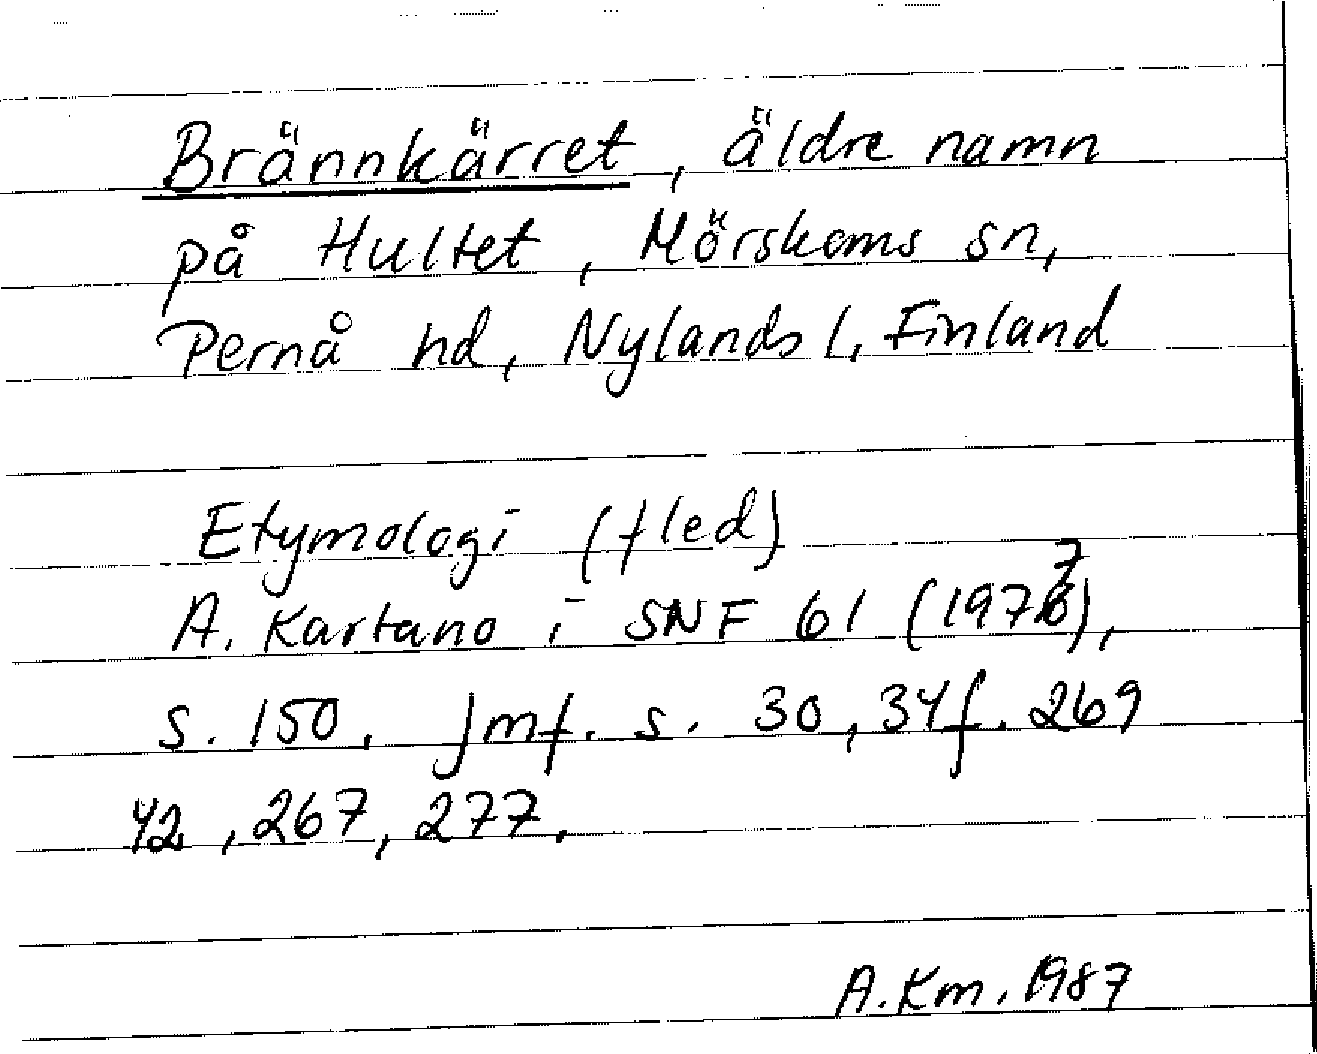 Brännkärret, äldre namn
på Hultet, Mörskoms sn,
Pernå hd, Nylands l, Finland
Etymologi (fled)
A. Kartano i SNF 61 (1977),
s. 150. Jmf. s. 30, 34f. 269
42, 267, 277.
A.Km. 1987